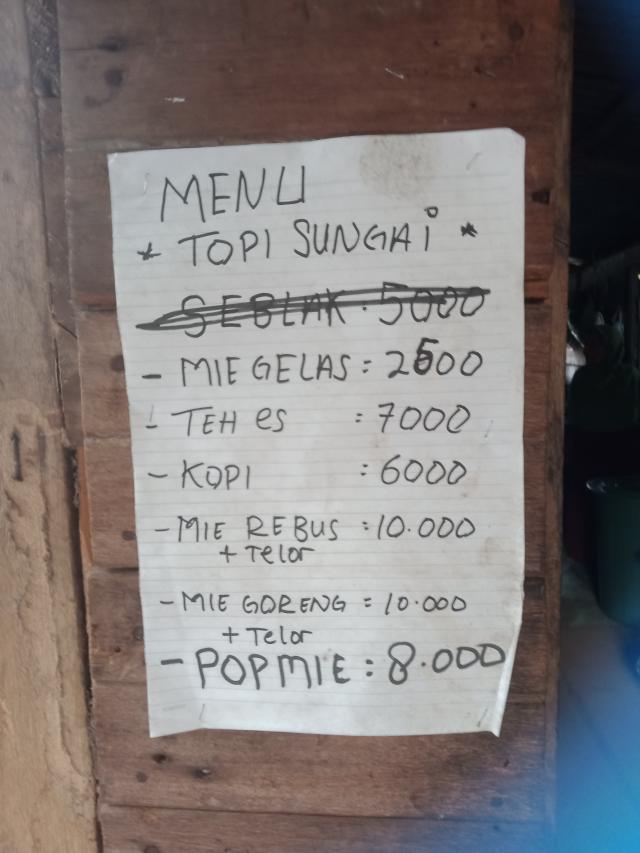 MENU
* TOPI SUNGAi *
SEBLAK : 5000
- MIE GELAS = 2500
- TEH es : 7000
- KOPI : 6000
- MIE REBUS = 10.000
+ Telor
- MIE GORENG = 10.000
+ Telor
- POPMIE : 8.000